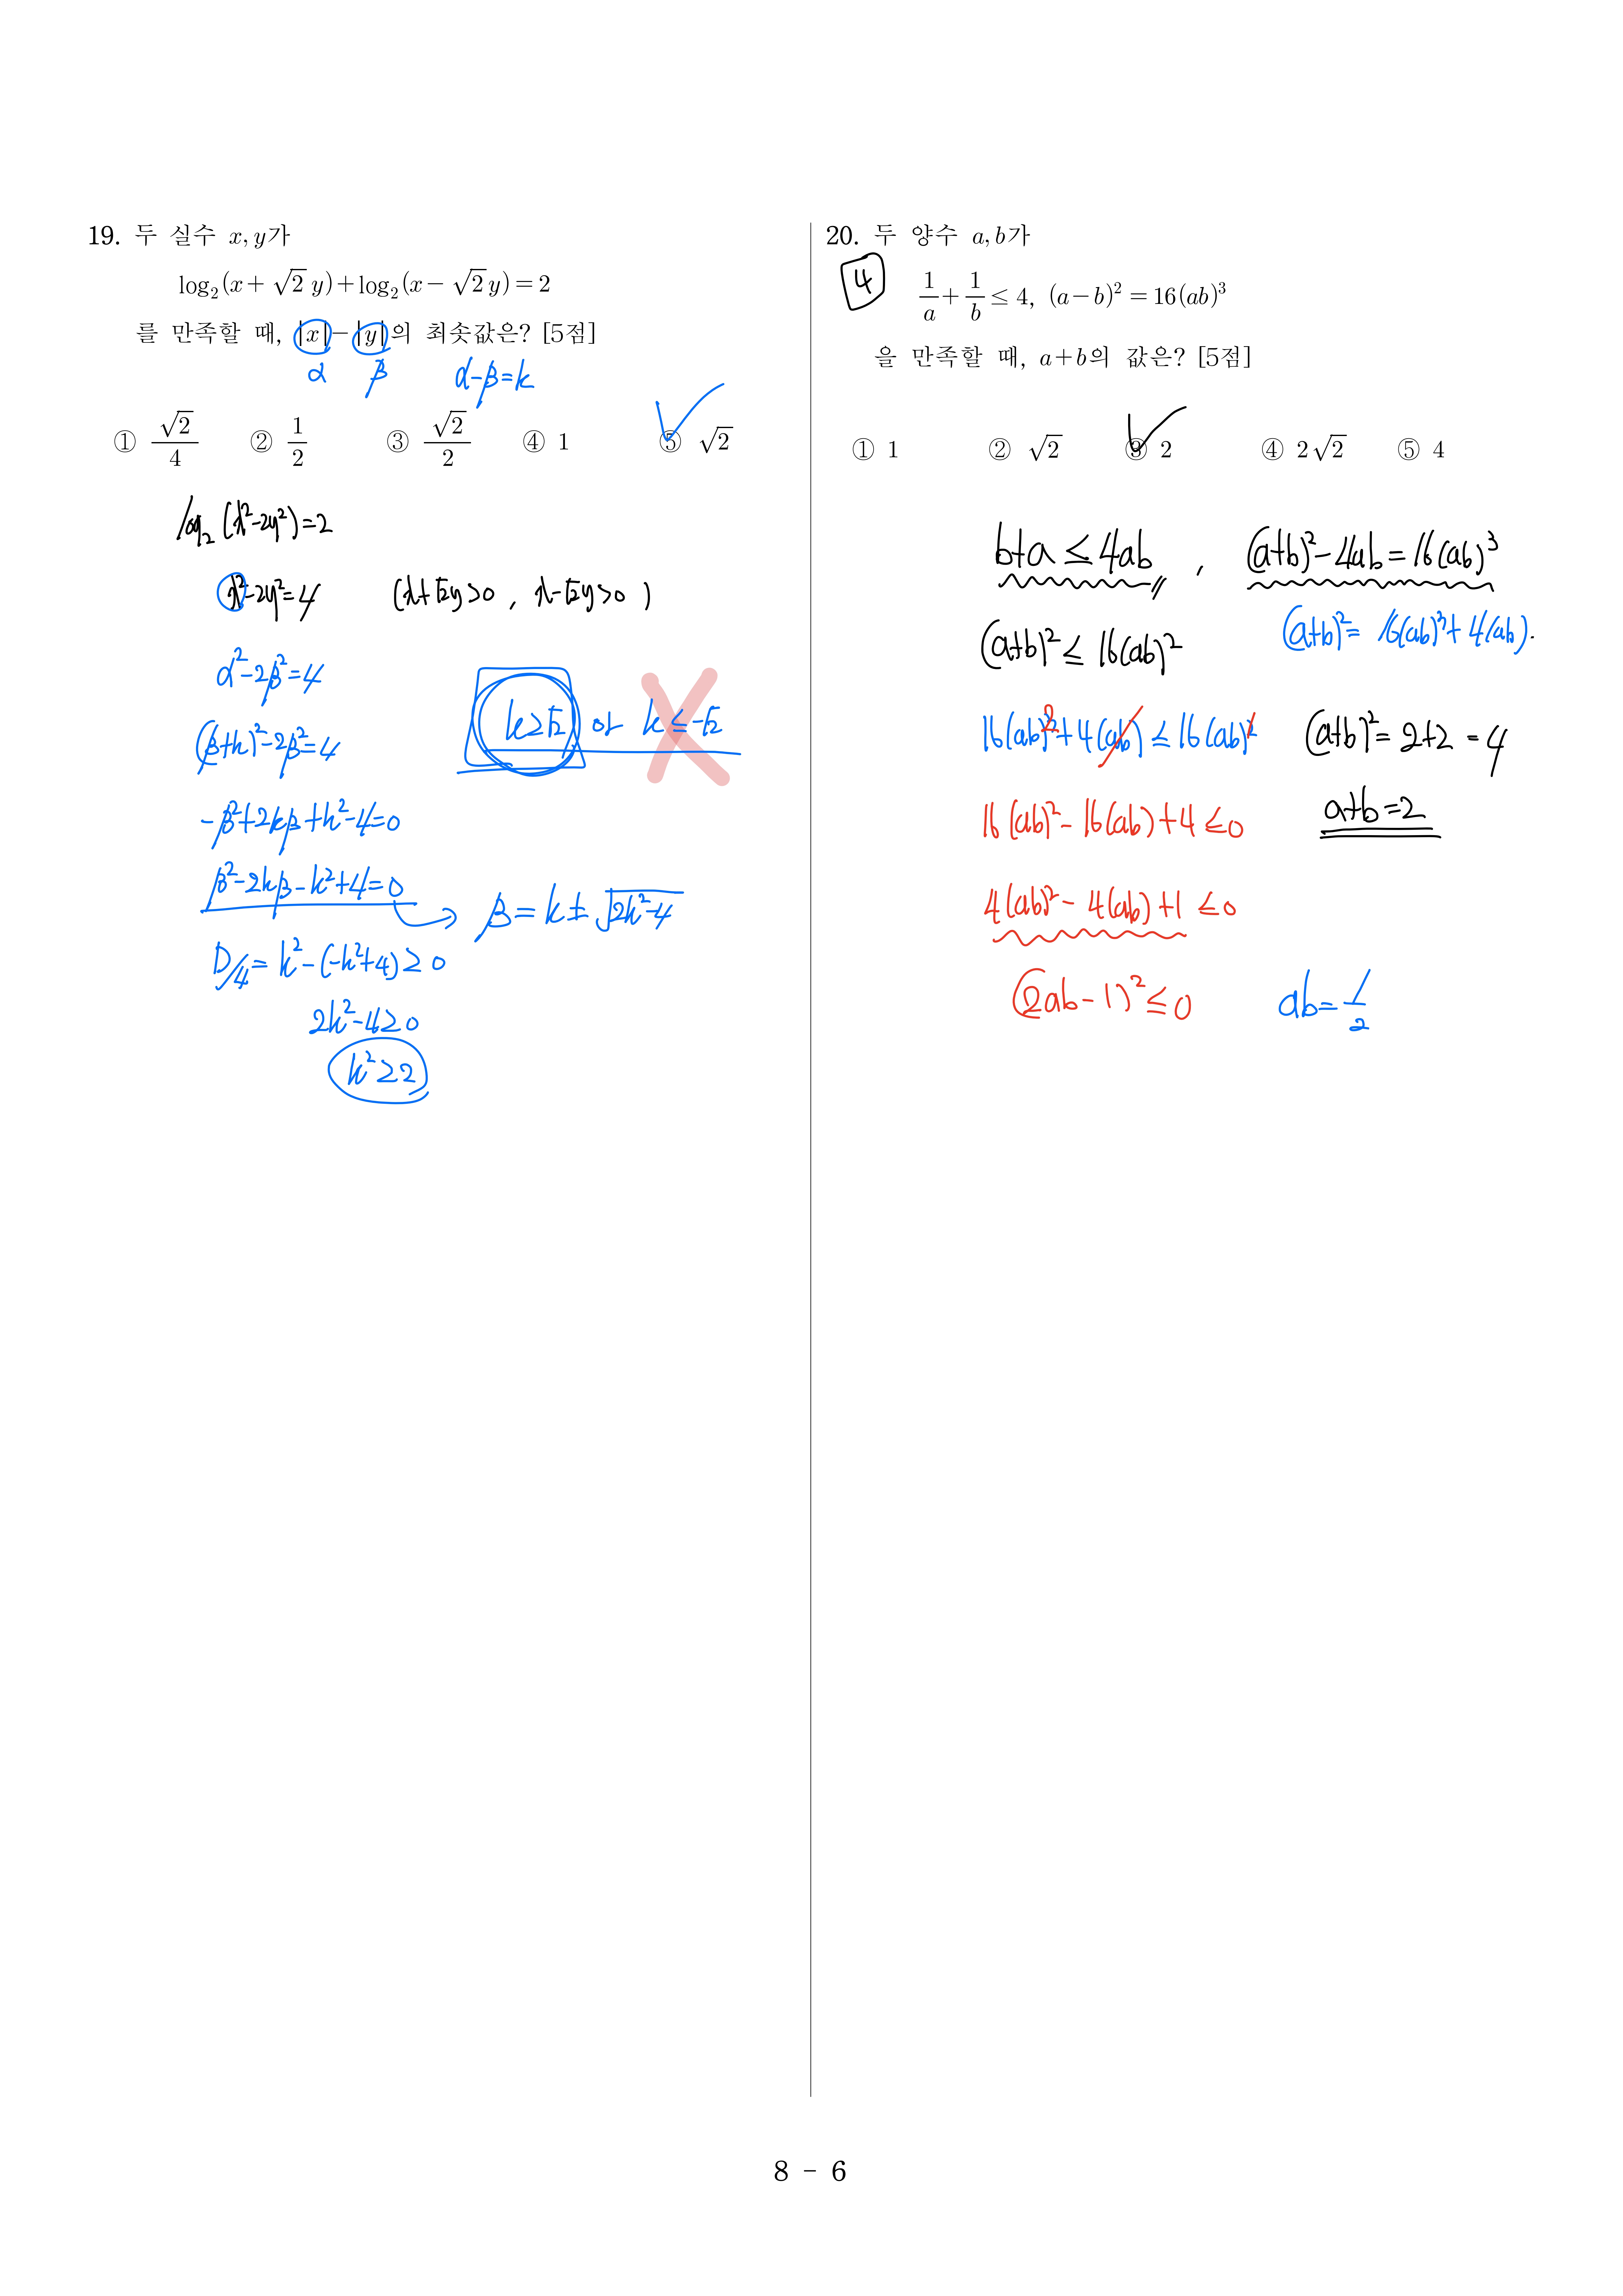 19. 두 실수 x, y가
log₂(x + √2 y) + log₂(x − √2 y) = 2
를 만족할 때, |x| − |y|의 최솟값은? [5점]
α β α−β=k
① √2/4 ② 1/2 ③ √2/2 ④ 1 ⑤ √2
log₂(x²−2y²)=2
x²−2y²=4 (x+√2y>0 , x−√2y>0 )
α²−2β²=4
k≥√2 or k≤−√2
(β+k)²−2β²=4
−β²+2kβ+k²−4=0
β²−2kβ−k²+4=0
β=k±√(2k²−4)
D/4=k²−(−k²+4)≥0
2k²−4≥0
k²≥2
20. 두 양수 a, b가
4
1/a + 1/b ≤ 4, (a−b)² = 16(ab)³
을 만족할 때, a+b의 값은? [5점]
① 1 ② √2 ③ 2 ④ 2√2 ⑤ 4
b+a ≤ 4ab , (a+b)²−4ab=16(ab)³
(a+b)²= 16(ab)³+4(ab).
(a+b)² ≤ 16(ab)²
16(ab)²+4(ab) ≤ 16(ab)²
(a+b)²=2+2=4
16(ab)²−16(ab)+4≤0
a+b=2
4(ab)²−4(ab)+1≤0
(2ab−1)²≤0
ab=1/2
8 - 6